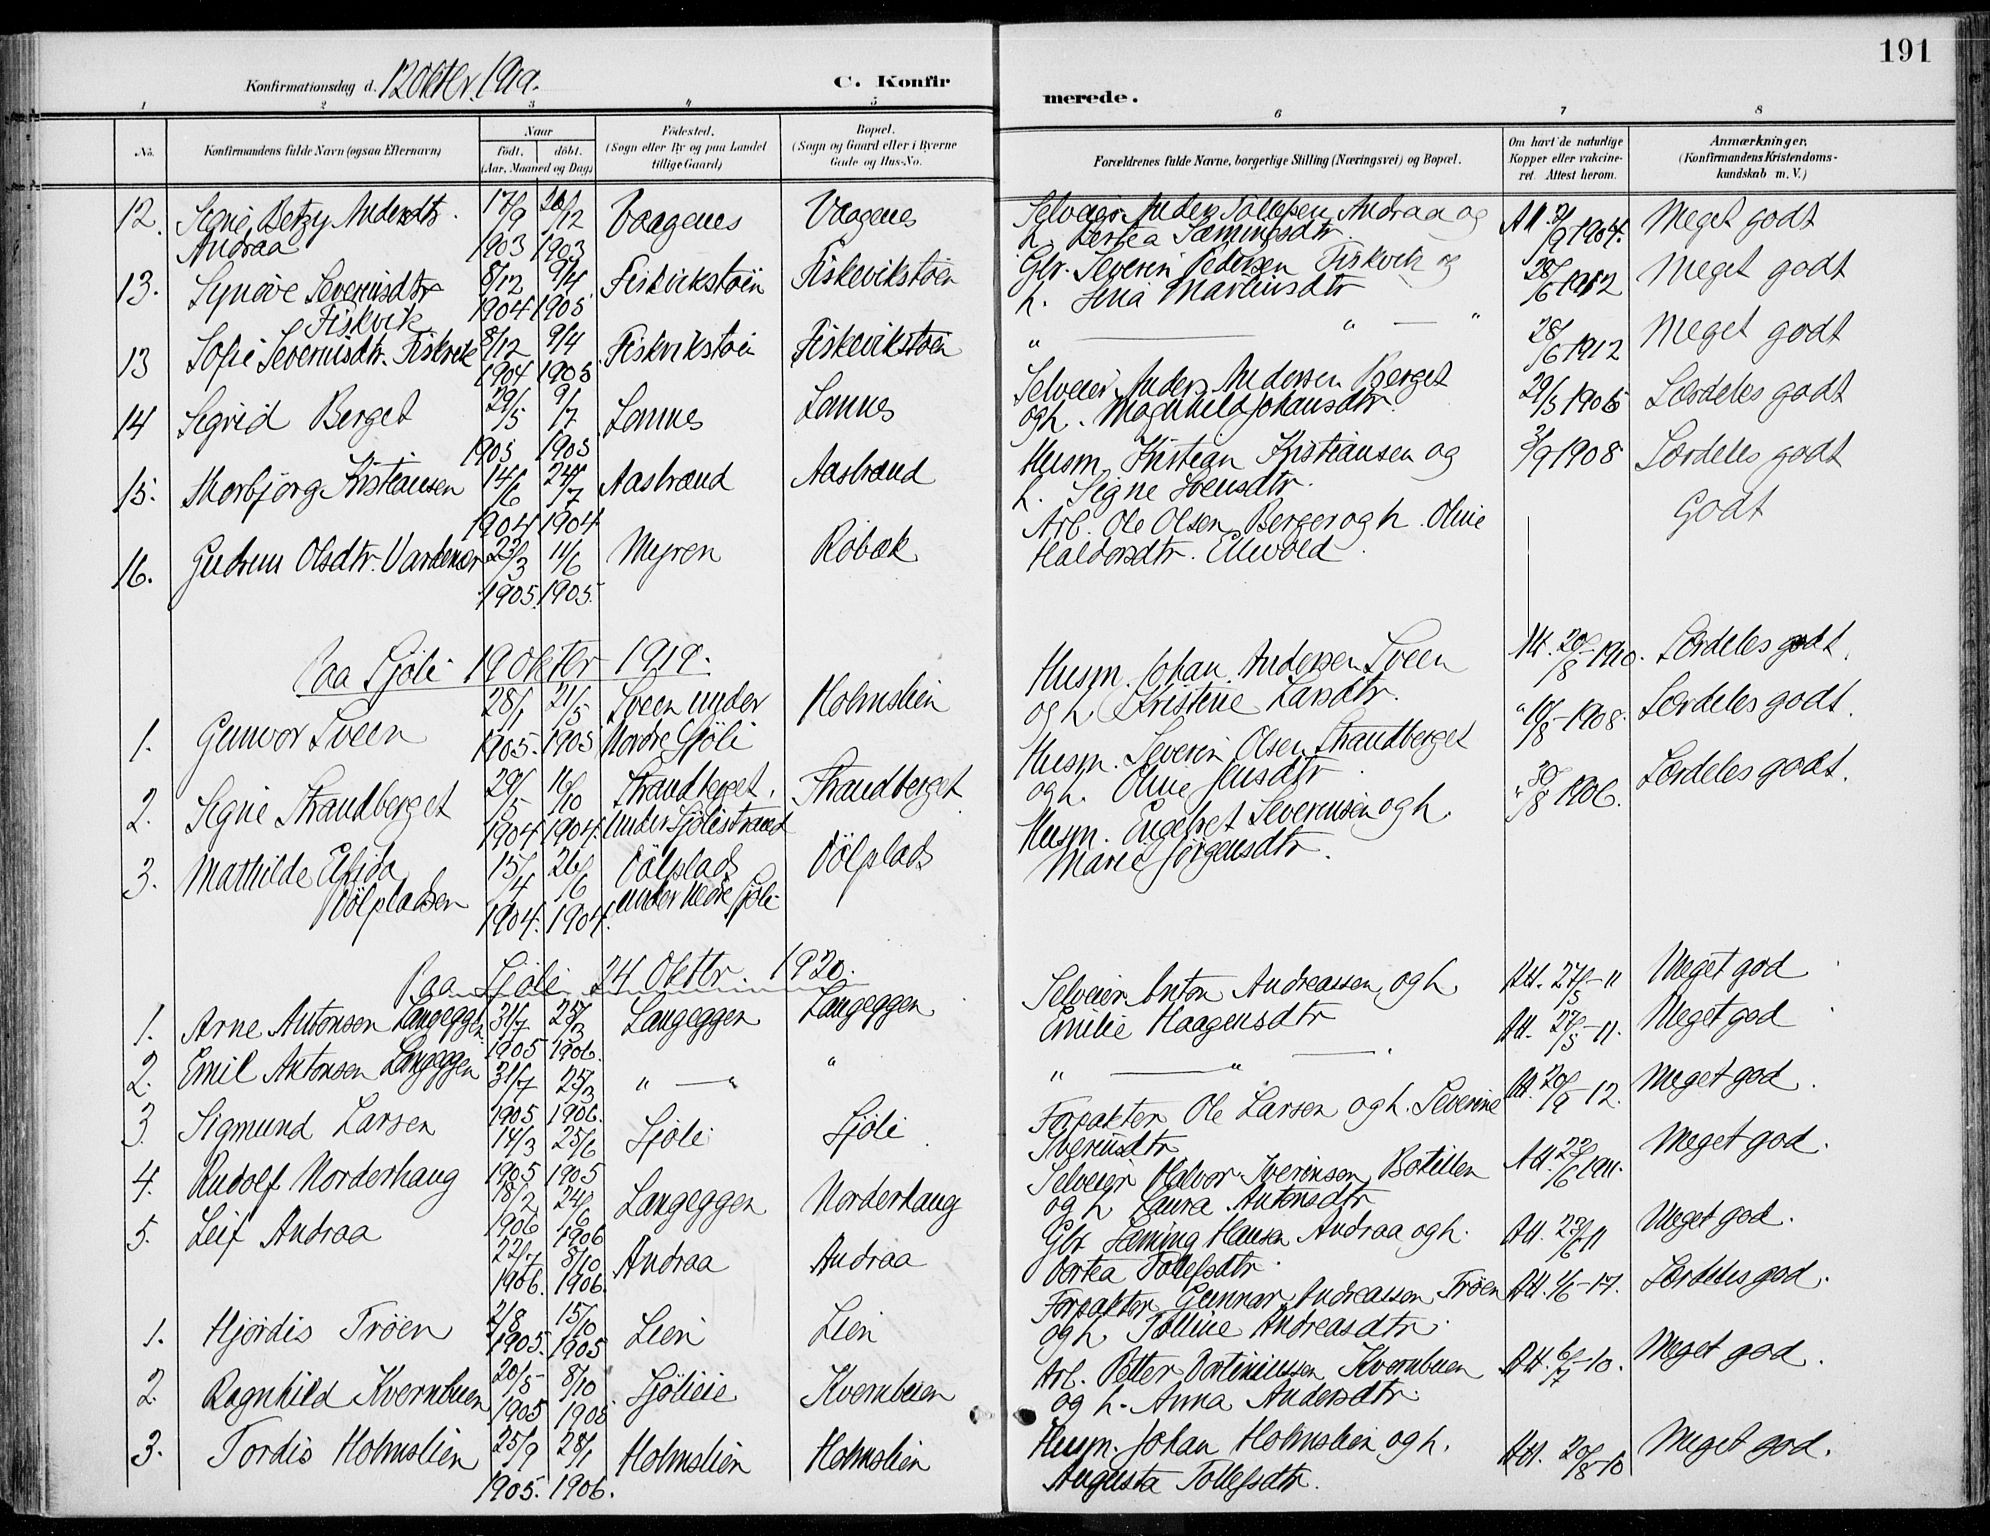 191
Konfirmationsdag d. 12 oktbr. 1919.
C. Konfirmerede.
1 2 3 4 5 6 7 8
No.
Konfirmandens fulde Navn (ogsaa Efternavn)
Naar
født. døbt.
(Aar, Maaned og Dag)
Födested.
(Sogn eller By og paa Landet
tillige Gaard)
Bopæl.
(Sogn og Gaard eller i Byerne
Gade og Hus-No.
Forældrenes fulde Navne, borgerlige Stilling (Næringsvei) og Bopæl.
Om havt de naturlige
Kopper eller vakcine-
ret. Attest herom.
Anmærkninger,
(Konfirmandens Kristendoms-
kundskab m. V.)
12. Signe Betzy Andersdtr. Andraa 17/9 1903 26/12 1903 Vaagenes Vaagenes Selveier Anders Tollefsen Andraa og h. Dortea Sæmingsdtr. Att. /9 1904. Meget godt
13. Synöve Severinsdtr. Fiskvik 8/12 1904 9/4 1905 Fiskvikstöen Fiskevikstöen Gbr. Severin Pedersen Fiskvik og h. Jenia Martinsdtr 28/6 1912 Meget godt
13 Sofie Severinsdtr. Fiskvik 8/12 1904 9/4 1905 Fiskvikstöen Fiskevikstöen " — " — " 28/6 1912 Meget godt
14 Sigrid Berget 29/5 1905 9/7 1905 Lannes Lannes Selveier Anders Andersen Berget og h. Magnhild Johansdtr. 29/5 1906 Særdeles godt
15. Thorbjörg Kristiansen 14/6 1904 24/7 1904 Aastrand Aastrand Husm. Kristian Kristiansen og h. Signe Iversdtr. 3/9 1908 Særdeles godt
16. Gudrun Olsdtr. Vardenær 23/3 1905 11/6 1905 Myren Robæk Arb. Ole Olsen Berger og h. Oline Haldorsdtr. Ellevold. Godt
Paa Sjöli 19 oktbr 1919.
1. Gunvor Sveen 28/1 1905. 21/5 1905 Sveen under Nordre Sjöli Holmslien Husm. Johan Andersen Sveen og h. Kristine Larsdtr. Att. 20/8-1910. Særdeles godt.
2. Signe Strandberget 29/5 1904 16/10 1904. Strandberget. under Sjölistrand Strandberget Husm. Severin Olsen Strandberget og h. Oline Jensdtr " 10/8-1908. Særdeles godt.
3. Mathilde Elfida Völpladsen 15/4 1904. 26/6 1904. Völplads under Nedre Sjöli Völplads Husm. Engebret Severinsen og h. Marie Jörgensdtr. " 30/8 1906. Særdeles godt.
Paa Sjöli 24 Oktbr. 1920.
1. Arne Antonsen Langeggen 31/7 1905 25/3 1906. Langeggen Langeggen Selveier Anton Andreassen og h. Emilie Haagensdtr Att. 27/5-11 Meget god
2. Emil Antonsen Langeggen 31/7 1905 25/3 1906. " — " " " — " — " Att. 27/5-11. Meget god
3. Sigmund Larsen 14/3 1905 25/6 1905 Sjöli Sjöli Forpakter Ole Larsen og h. Severine Iverinsdtr Att. 20/9-12. Meget god.
4. Rudolf Norderhaug 18/2 1906 24/6 1906 Langeggen Norderhaug Selveier Halvor Iverinsen Botillen og h Laura Antonsdtr Att. 22/6 1911. Meget god.
5. Leif Andraa 22/7 1906. 8/10 1906. Andraa Andraa Gbr. Sæming Hansen Andraa og h. Dortea Tollefsdtr. Att. 22/6 11 Meget god.
1. Hjördis Tröen 2/8 1905. 15/10 1905 Lien Lien Forpakter Gunnar Andreassen Tröen og h Tolline Andreasdtr. Att. 1/6-17. Særdeles god.
2. Ragnhild Kvernbuen 20/5 1905 8/10 1905 Sjölieie Kvernbuen Arb. Petter Martiniussen Kvernbuen og h. Anna Andersdtr. Att. 6/7-10. Meget god.
3. Tordis Holmslien 25/9 1905. 28/1 1906. Holmslien Holmslien Husm. Johan Holmslien og h. Augusta Tollefsdtr. Att. 20/8-10 Meget god.